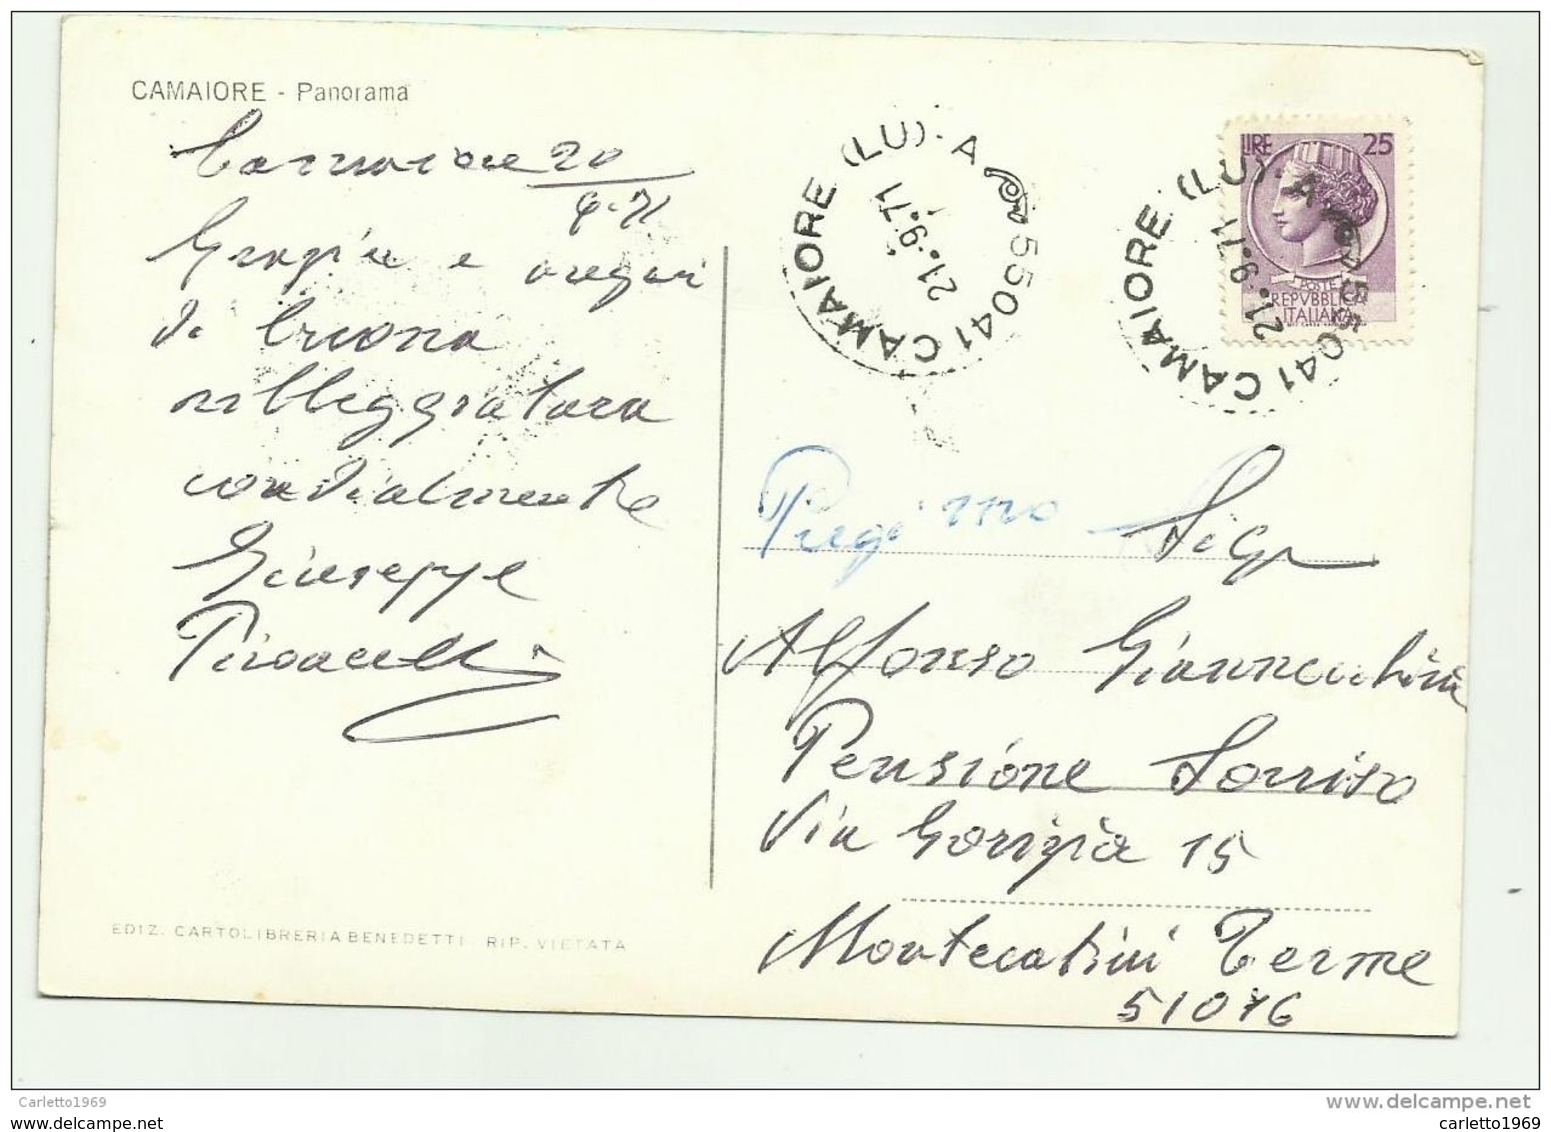 CAMAIORE - Panorama
Camaiore 20
9-71
Grazie e auguri
di buona
villeggiatura
cordialmente
Giuseppe
CAMAIORE (LU)-A
55041
21.9.71
LIRE 25
POSTE
REPVBBLICA
ITALIANA
CAMAIORE (LU)-A
55041
21.9.71
Sigr
Alfonso Giannecchini
Pensione Sorriso
Via Gorizia 15
Montecatini Terme
51016
EDIZ. CARTOLIBRERIA BENEDETTI RIP. VIETATA
Carletto1969
www.delcampe.net
carletto1969
carletto1969